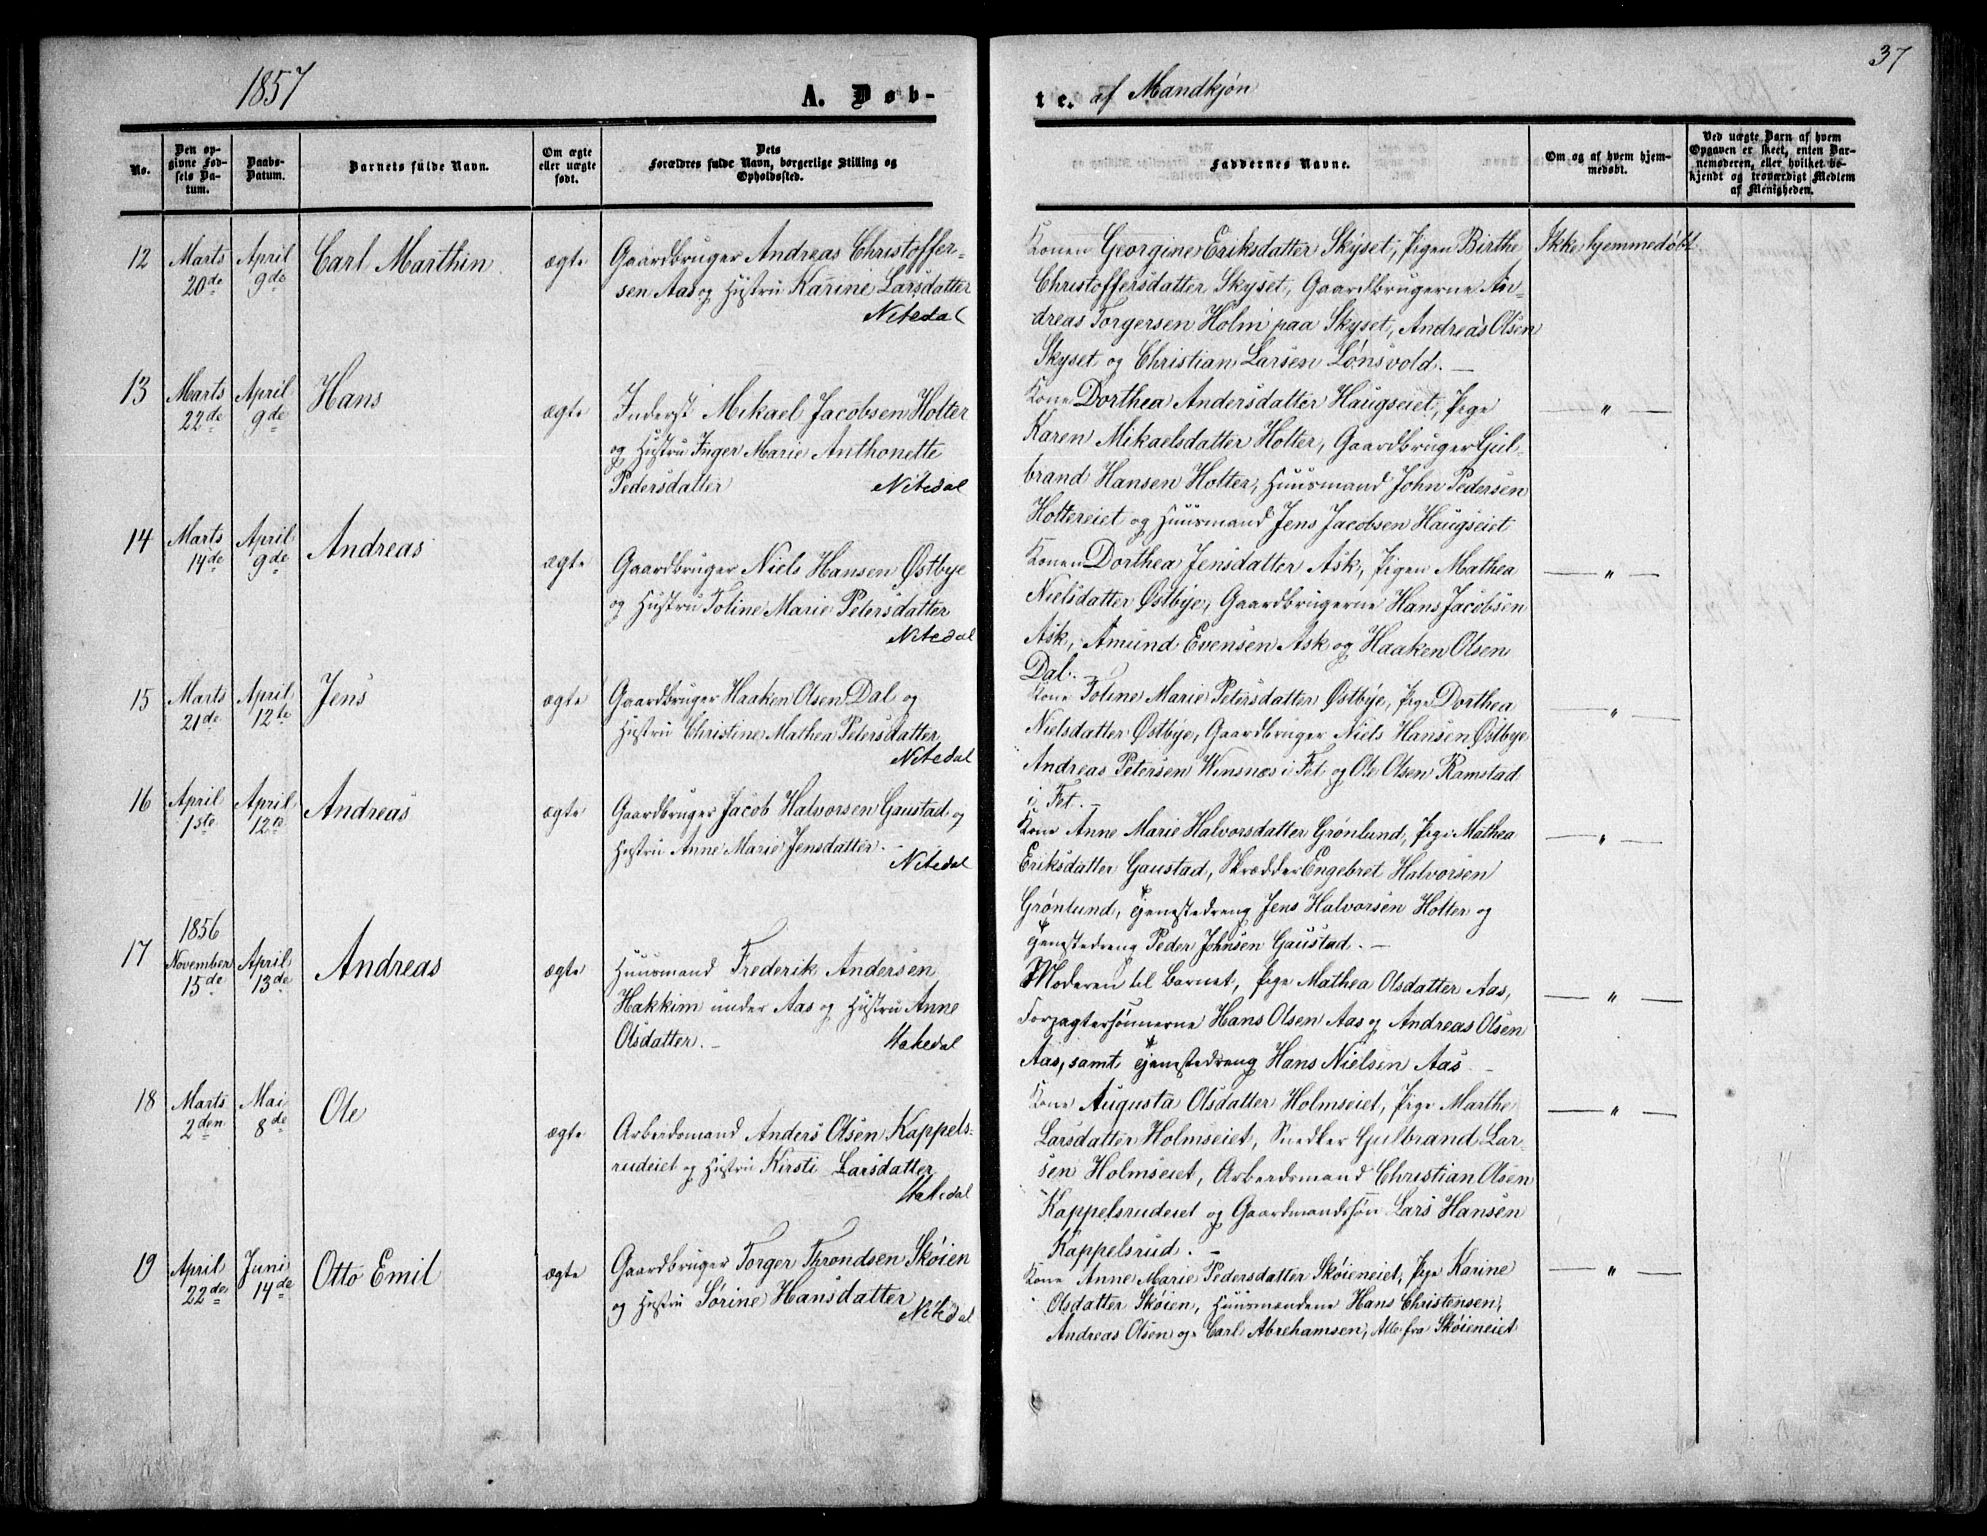 1857
A. Døb-
No.
Den op-
givne Fød-
sels Da-
tum.
Daabs-
Datum.
Barnets fulde Navn.
Om ægte
eller uægte
født.
Dets
Forældres fulde Navn, borgerlige Stilling og
Opholdssted.
12
Marts
20de
April
9de
Carl Marthin
ægte
Gaardbruger Andreas Christoffer-
sen Aas og Hustru Karine Larsdatter
Nitedal
13
Marts
22de
April
9de
Hans
ægte
Inderst Mikael Jacobsen Holter
og Hustru Inger Marie Anthonette
Pedersdatter
Nitedal
14
Marts
14de
April
9de
Andreas
ægte
Gaardbruger Niels Hansen Østbye
og Hustru Toline Marie Petersdatter
Nitedal
15
Marts
21de
April
12te
Jens
ægte
Gaardbruger Haaken Olsen Dal og
Hustru Christine Mathea Petersdatter
Nitedal
16
April
1ste
April
12te
Andreas
ægte
Gaardbruger Jacob Halvorsen Gaustad og
Hustru Anne Marie Jensdatter. -
Nitedal
17
1856
November
15de
April
13de
Andreas
ægte
Huusmand Frederik Andersen
Hakkim under Aas og Hustru Anne
Olsdatter. -
Hakedal
18
Marts
2den
Mai
8de
Ole
ægte
Arbeidsmand Anders Olsen Kappels-
rudeiet og Hustru Kirsti Larsdatter
Hakedal
19
April
22de
Juni
14de
Otto Emil
ægte
Gaardbruger Torger Throndsen Skøien
og Hustru Sørine Hansdatter
Nitedal
37
te. af Mandkjøn
Faddernes Navne.
Om og af hvem hjem-
medøbt.
Ved uægte Barn af hvem
Opgaven er skeet, enten Bar-
nemoderen, eller hvilket be-
kjendt og troværdigt Medlem
af Menigheden.
Konen Georgine Eriksdatter Skyset, Pigen Birthe
Ikke hjemmedøbt
Christoffersdatter Skyset, Gaardbrugerne An-
dreas Torgersen Holm paa Skyset, Andreas Olsen
Skyset og Christian Larsen Lønsvold. -
Kone Dorthea Andersdatter Haugseiet, Pige
— " —
Karen Mikaelsdatter Holter, Gaardbruger Gul-
brand Hansen Holter, Huusmand John Pedersen
Holtereiet og Huusmand Jens Jacobsen Haugseiet
Konen Dorthea Jensdatter Ask, Pigen Mathea
— " —
Nielsdatter Østbye, Gaardbrugerne Hans Jacobsen
Ask, Amund Evensen Ask og Haaken Olsen
Dal. -
Kone Toline Marie Petersdatter Østbye, Pige Dorthea
— " —
Nielsdatter Østbye, Gaardbruger Niels Hansen Østbye
Andreas Petersen Winsnæs i Fet og Ole Olsen Ramstad
i Fet. -
Kone Anne Marie Halvorsdatter Grønlund, Pige Mathea
— " —
Eriksdatter Gaustad, Skrædder Engebret Halvorsen
Grønlund, Tjenestedreng Jens Halvorsen Holter og
Tjenestedreng Peder Johnsen Gaustad. -
Moderen til Barnet, Pige Mathea Olsdatter Aas,
— " —
Forpagtersønnerne Hans Olsen Aas og Andreas Olsen
Aas, samt Tjenestedreng Hans Nielsen Aas. -
Kone Augusta Olsdatter Holmseiet, Pige Marthe
— " —
Larsdatter Holmseiet, Snedker Gulbrand Lar-
sen Holmseiet, Arbeidsmand Christian Olsen
Kappelsrudeiet og Gaardmandssøn Lars Hansen
Kappelsrud. -
Kone Anne Marie Pedersdatter Skøieneiet, Pige Karine
— " —
Olsdatter Skøien, Huusmændene Hans Christensen,
Andreas Olsen og Carl Abrehamsen, Alle fra Skøieneiet